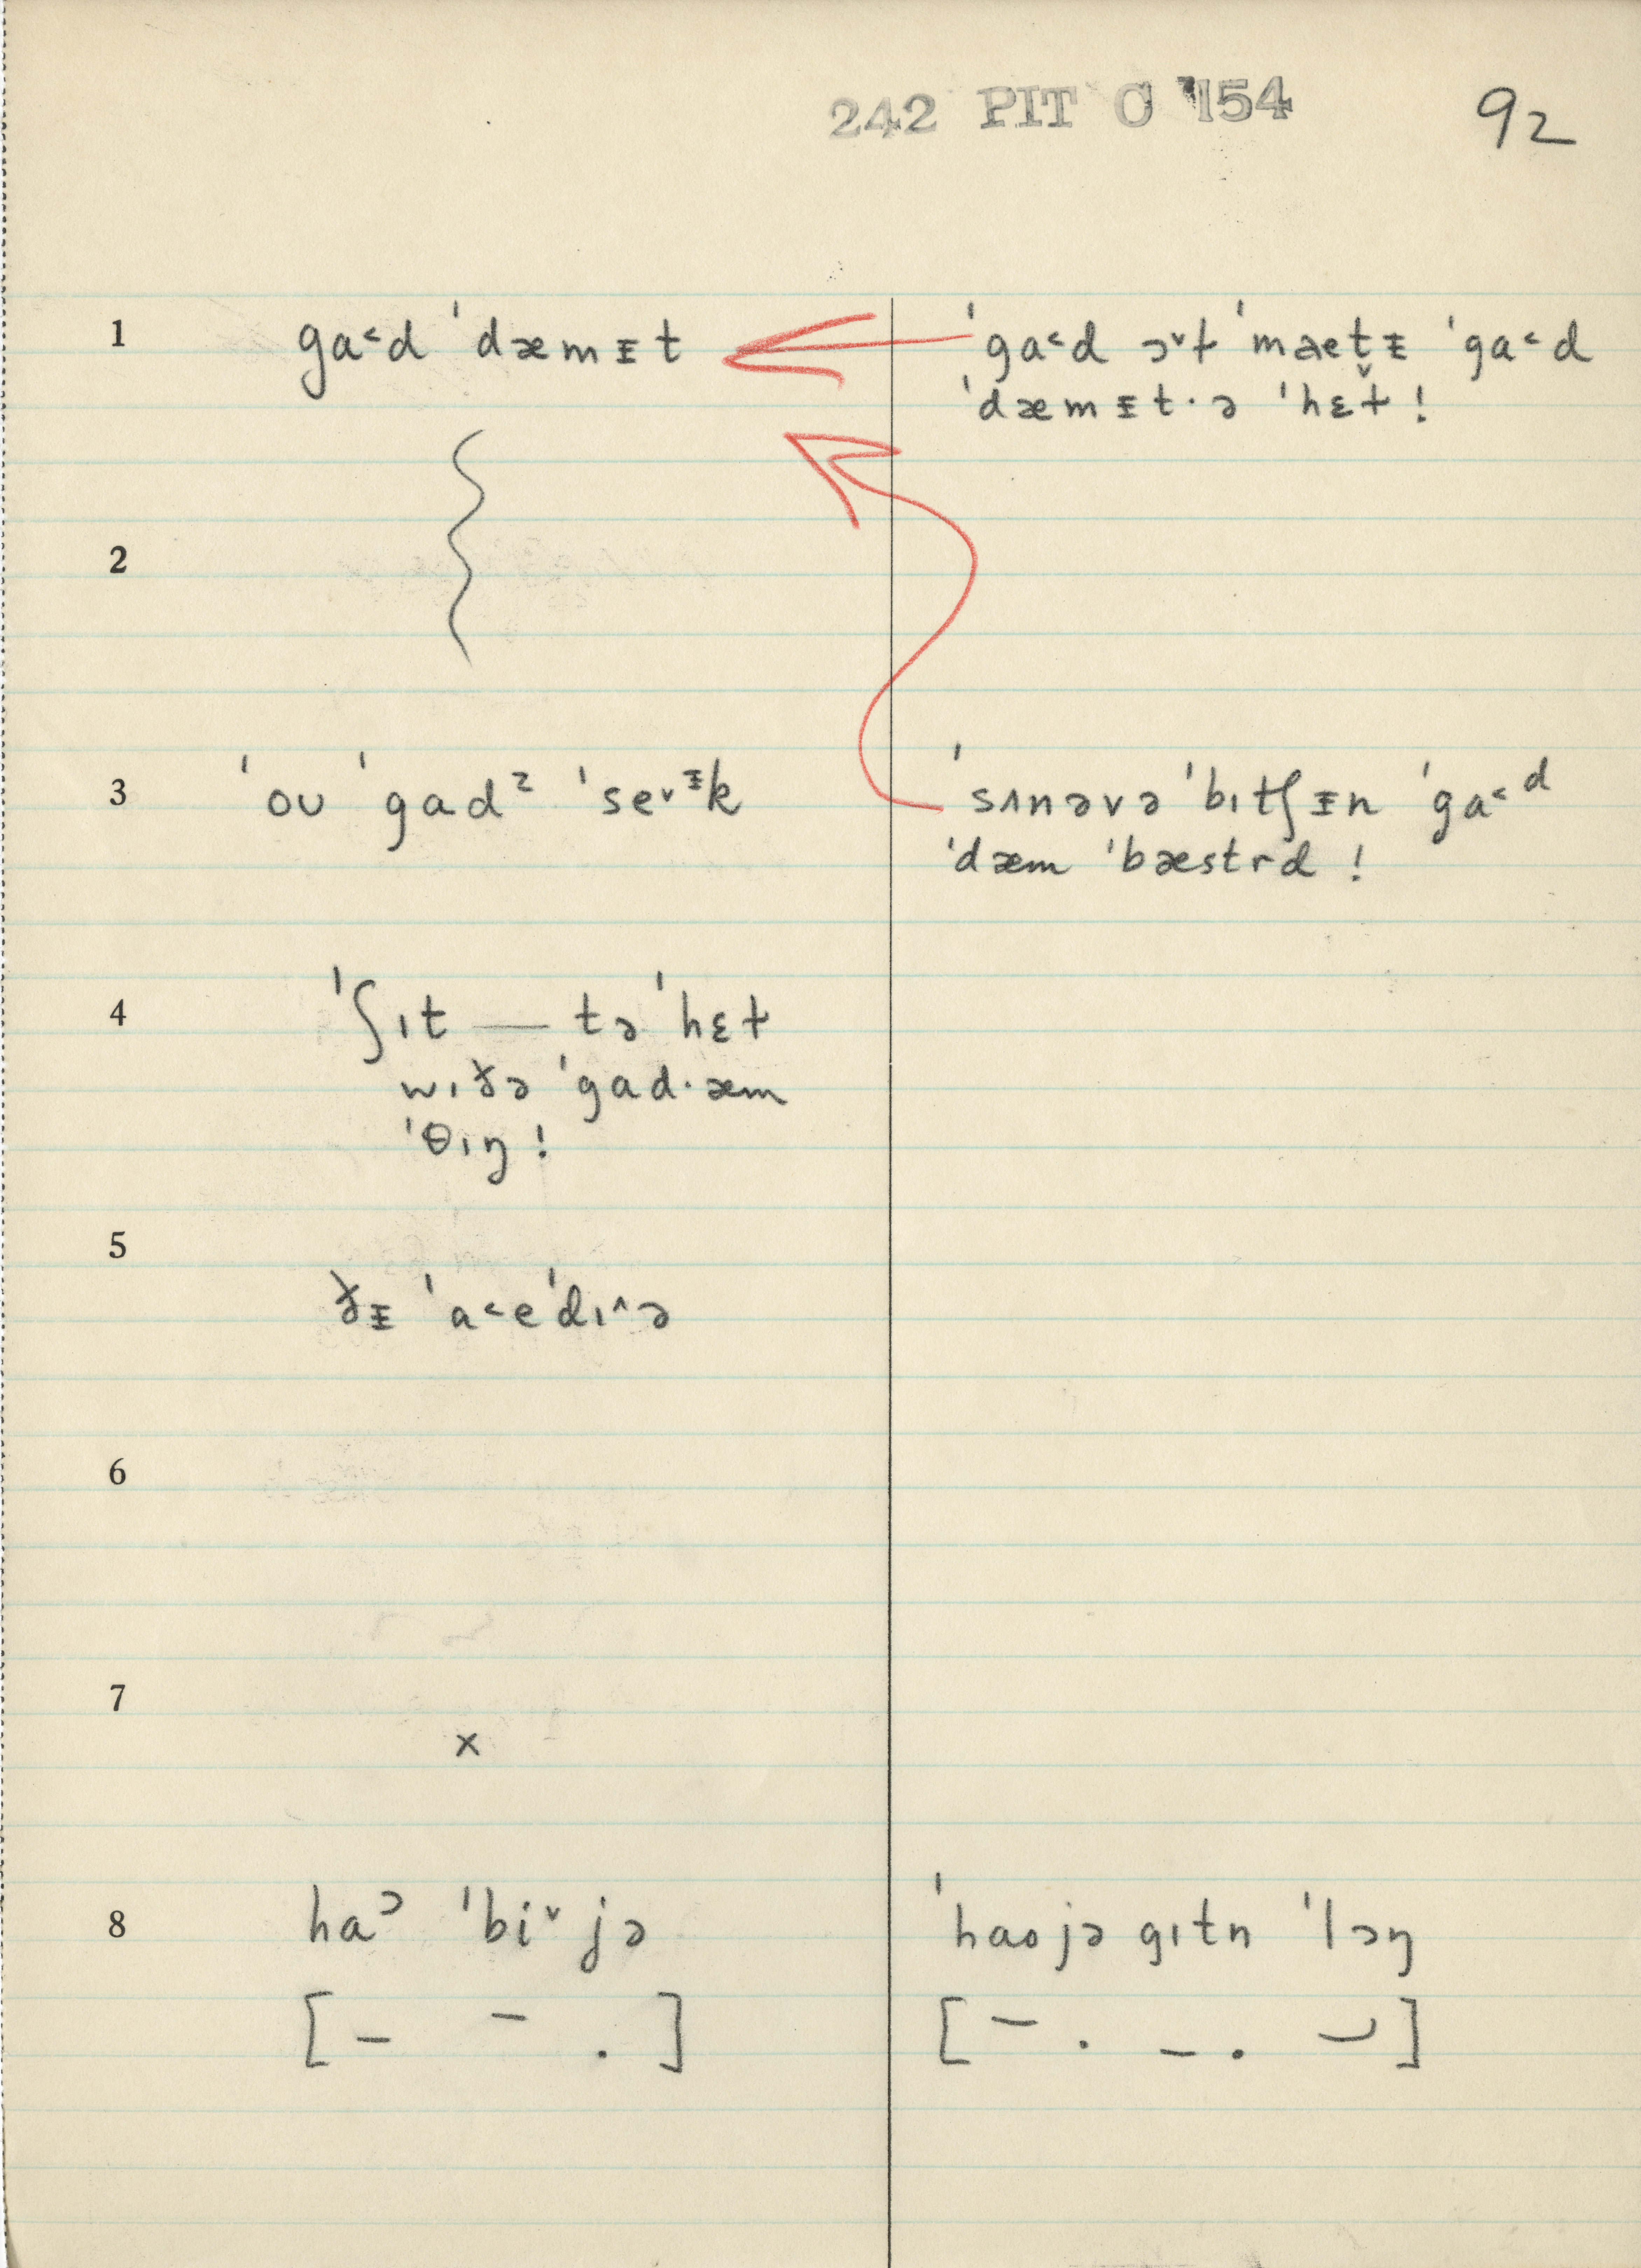 242 PIT C 154
92
1 ga˂d ˈdæmᵻt
ˈga˂d ɔ˅ɫ ˈmaetᵻ̬ ˈga˂d
ˈdæmᵻt·ə ˈhɛɫ!
2
3 ˈoʊ ˈgadᶻ ˈse˅ᵻk
ˈsʌnəvə ˈbɪtʃᵻn ˈga˂d
ˈdæm ˈbæstrd!
4 ˈʃɪt — tə ˈhɛɫ
wɪðə ˈgad·æm
ˈθɪŋ!
5
ðᵻ ˈa˂eˈdɪ˄ə
6
7
x
8 haᵓ ˈbi˅jə
ˈhaojə gɪtn ˈlɔŋ
[– – .]
[– . – . ⌣]